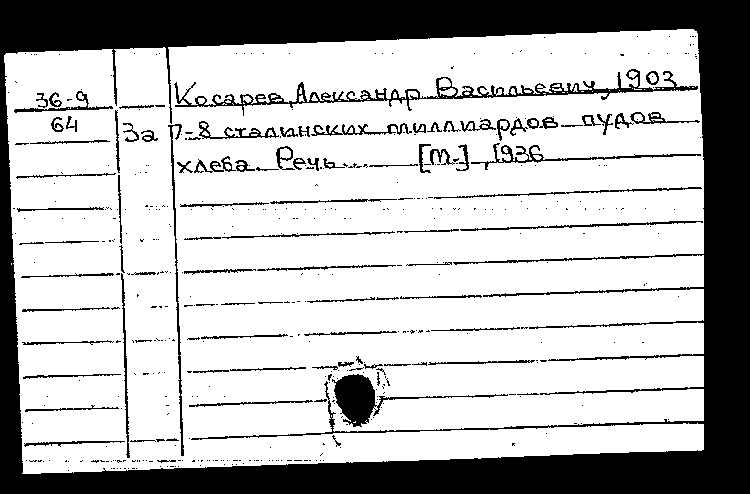 36-9
64
Косарев, Александр Васильевич, 1903
За 7-8 сталинских миллиардов пудов
хлеба. Речь... [М.], 1936